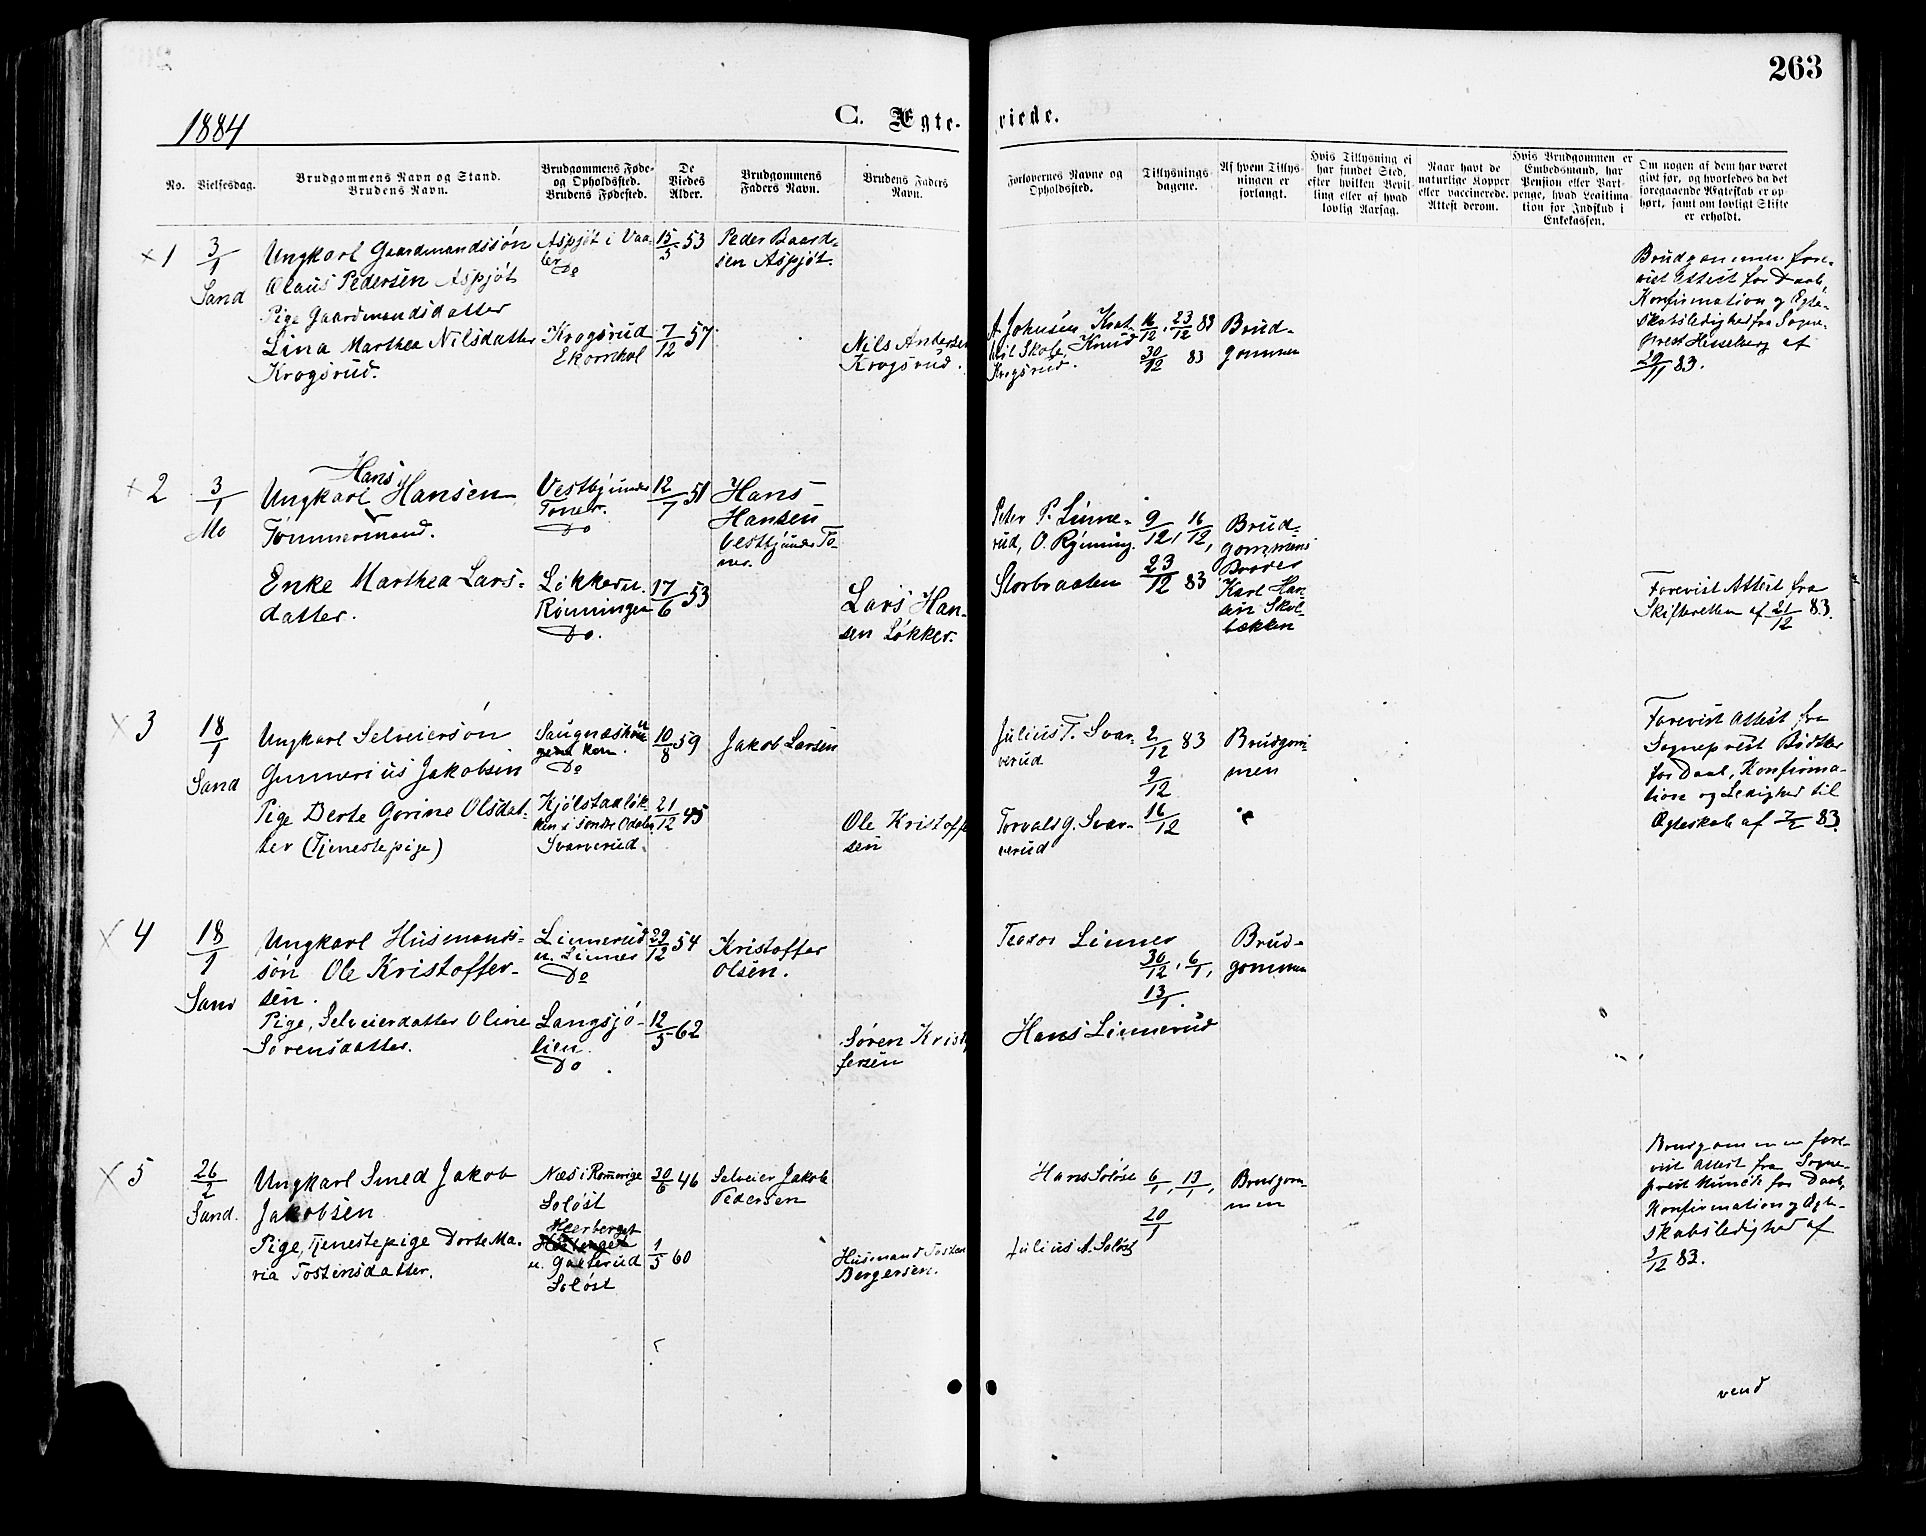 263
1884
C. Ægteviede.
No.
Vielsesdag.
Brudgommens Navn og Stand.
Brudens Navn.
Brudgommens Føde-
og Opholdssted.
Brudens Fødested.
De
Viedes
Alder.
Brudgommens
Faders Navn.
Brudens Faders
Navn.
Forlovernes Navne og
Opholdssted.
Tillysnings-
dagene.
Af hvem Tillys-
ningen er
forlangt.
Hvis Tillysning ei
har fundet Sted,
efter hvilken Bevil-
ling eller af hvad
lovlig Aarsag.
Naar havt de
naturlige Kopper
eller vaccinerede.
Attest derom.
Hvis Brudgommen er
Embedsmand, har
Pension eller Vart-
penge, hvad Legitima-
tion for Indskud i
Enkekassen.
Om nogen af dem har været
gift før, og hvorledes da det
foregaaende Ægteskab er op-
hørt, samt om lovligt Skifte
er erholdt.
x 1
3/1
Sand
Ungkarl Gaardmandssøn
Olaus Pedersen Aspjøt
Pige Gaardmandsdatter
Lina Marthea Nilsdatter
Krogsrud.
Aspjøt i Vaa-
ler
Do
Krogsrud
Ekornhol
15/5 53
7/12 57
Peder Baard-
sen Aspjøt.
Nils Andersen
Krogsrud.
A. Johnsen Krat-
Skole, Knud
Krogsrud.
16/12, 23/12 83
30/12 83
Brud-
gommen
Brudgommen fore-
vist Attest for Daab,
Konfirmation og Ægte-
skabsledighed fra Sogne-
prest Hesselberg af
29/11 83.
x 2
3/1
Mo
Hans
Ungkarl Hansen
Tømmermand.
Enke Marthea Lars-
datter.
Vestby under
Toner.
Do
Løkker u.
Rønningen
Do.
12/7 51
17/6 53
Hans
Hansen
Vestby under To-
ner.
Lars Han-
sen Løkker.
Peter P. Linne-
rud, O. Rynning
Storbraaten
9/12, 16/12,
23/12 83
Brud-
gommens
Broder
Karl Han-
sen Skol-
bækken
Forevist Attest fra
Skifteretten af 21/12 83.
x 3
18/1
Sand
Ungkarl Selveiersøn
Gunnerius Jakobsen
Pige Berte Gorine Olsdat-
ter (Tjenestepige)
Do
Kjølstadløk-
ken i Søndre Odalen
Svarverud.
10/8 59
21/12 45
Jakob Larsen
Ole Kristoffer
sen
Julius T. Svar-
verud
Torvald G. Svar-
verud
2/12 83
9/12
16/12
Brudgom-
men
Forevist Attest fra
Sogneprest Bødtker
for Daab, Konfirma-
tion og Ledighed til
Ægteskab af 83.
x 4
18/1
Sand
Ungkarl Husmands-
søn Ole Kristoffer-
sen.
Pige, Selveierdatter Oline
Sørensdatter.
Linnerud
u. Linner
Do
Langsjø-
lien.
Do
29/12 54
12/5 62
Kristoffer
Olsen.
Søren Krist
fersen
Teodor Linner
Hans Linnerud
30/12, 6/1,
13/1.
Brud-
gommen
x 5
26/2
Sand.
Ungkarl Smed Jakob
Jakobsen
Pige, Tjenestepige Dorte Ma-
ria Tostensdatter.
Næs i Romerige
Soløst
Heerberget
u. Galterud
Soløst
30/6 46
1/5 60
Selveier Jakob
Pedersen
Husmand Tosten
Bergersen.
Hans Soløst
Julius A. Soløst
6/1, 13/1,
20/1
Brudgom-
men
Brudgommen fore-
vist Attest fra Sogne-
prest Munch for Daab,
Konfirmation og Ægte-
skabsledighed af
3/12 83.
vend